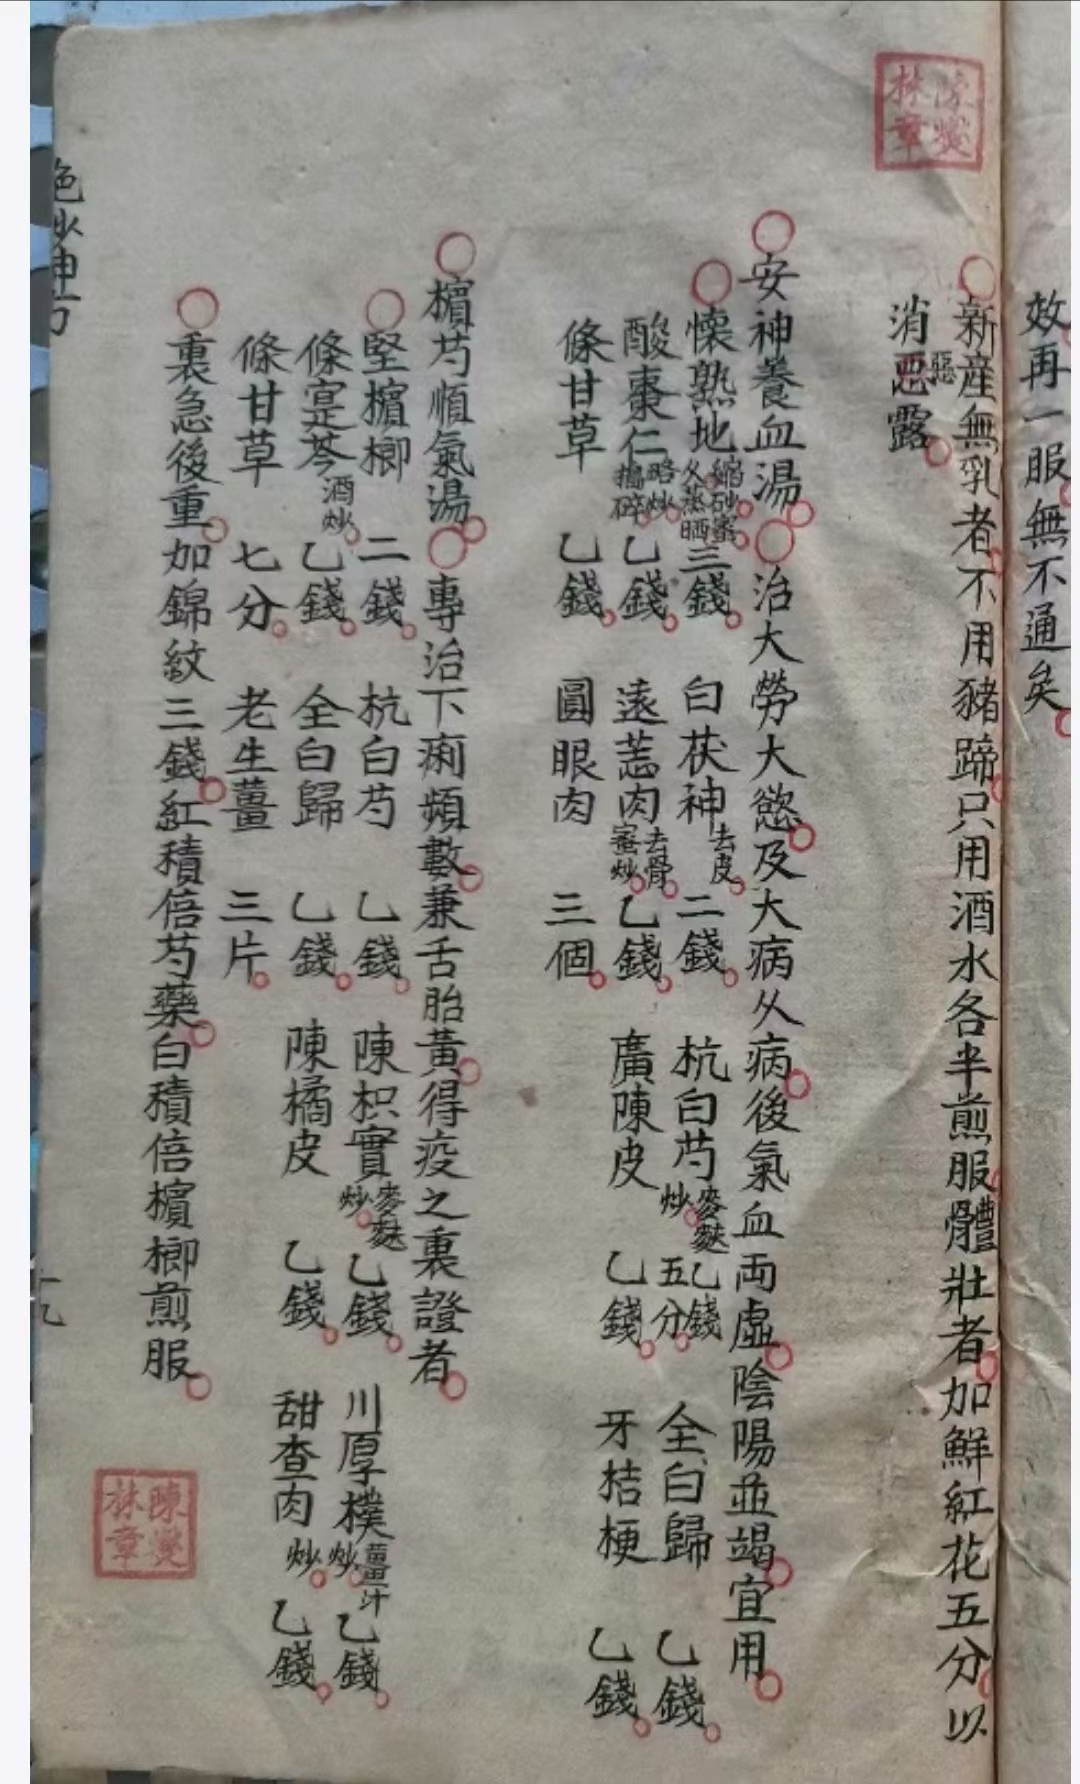 效再一服無不通矣
新產無乳者不用豬蹄只用酒水各半煎服體壯者加鮮紅花五分以
消惡露
惡
安神養血湯 治大勞大慾及大病久病後氣血両虛陰陽並竭宜用
懷熟地 縮砂蜜久蒸晒 三錢 白茯神 去皮 二錢 杭白芍 麥麩炒 乙錢五分 全白歸 乙錢
酸棗仁 略炒搗碎 乙錢 遠志肉 去骨蜜炒 乙錢 廣陳皮 乙錢 牙桔梗 乙錢
條甘草 乙錢 圓眼肉 三個
檳芍順氣湯 專治下痢頻數兼舌胎黃得疫之裏證者
堅檳榔 二錢 杭白芍 乙錢 陳枳實 麥麩炒 乙錢 川厚樸 薑汁炒 乙錢
條寔芩 酒炒 乙錢 全白歸 乙錢 陳橘皮 乙錢 甜查肉 炒 乙錢
條甘草 七分 老生薑 三片
裏急後重加錦紋三錢紅積倍芍藥白積倍檳榔煎服
陳燮林章
陳燮林章